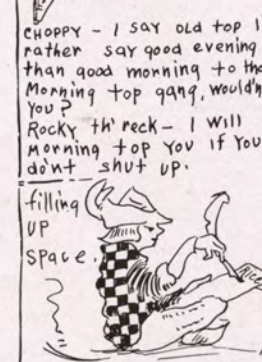 CHOPPY - I SAY OLD TOP I'
rather say good evening
than good morning to the
Morning top gang, wouldn'
You?
ROCKY th' reck - I WILL
Morning top You IF You
do'nt shut UP.
filling
UP
SPace.